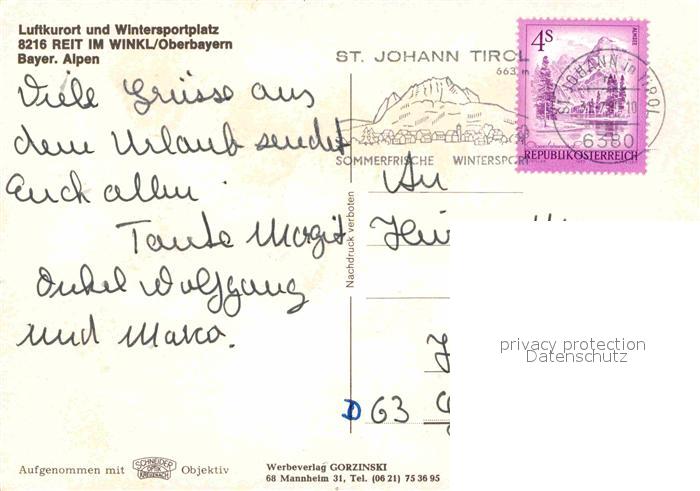 Luftkurort und Wintersportplatz
8216 REIT IM WINKL/Oberbayern
Bayer. Alpen
Viele Grüsse aus
dem Urlaub sendet
Euch allen
Tante Margit
Onkel Wolfgang
und Marco.
Aufgenommen mit SCHNEIDER OPTIK KREUZNACH Objektiv
Nachdruck verboten
Werbeverlag GORZINSKI
68 Mannheim 31, Tel. (06 21) 75 36 95
ST. JOHANN TIROL
663 m
SOMMERFRISCHE WINTERSPORT
4S
ALMSEE
REPUBLIK ÖSTERREICH
ST. JOHANN in TIROL
6380
An
D 63
privacy protection
Datenschutz